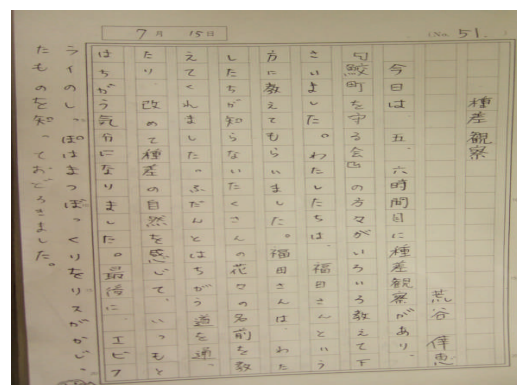 7月 15日
(No. 51.)
種差観察
荒谷 倖恵
今日は、五、六時間目に種差観察があり、
鮫町を守る会の方々がいろいろ教えて下
さいました。わたしたちは、福田さんという
方に教えてもらいました。福田さんは、わた
したちが知らないたくさんの花々の名前を教
えてくれました。ふだんとはちがう道を通っ
たり、改めて種差の自然を感じて、いつもと
はちがう気分になりました。最後に、エビフ
ライのしっぽはまつぼっくりをリスがかじっ
たものを知っておどろきました。